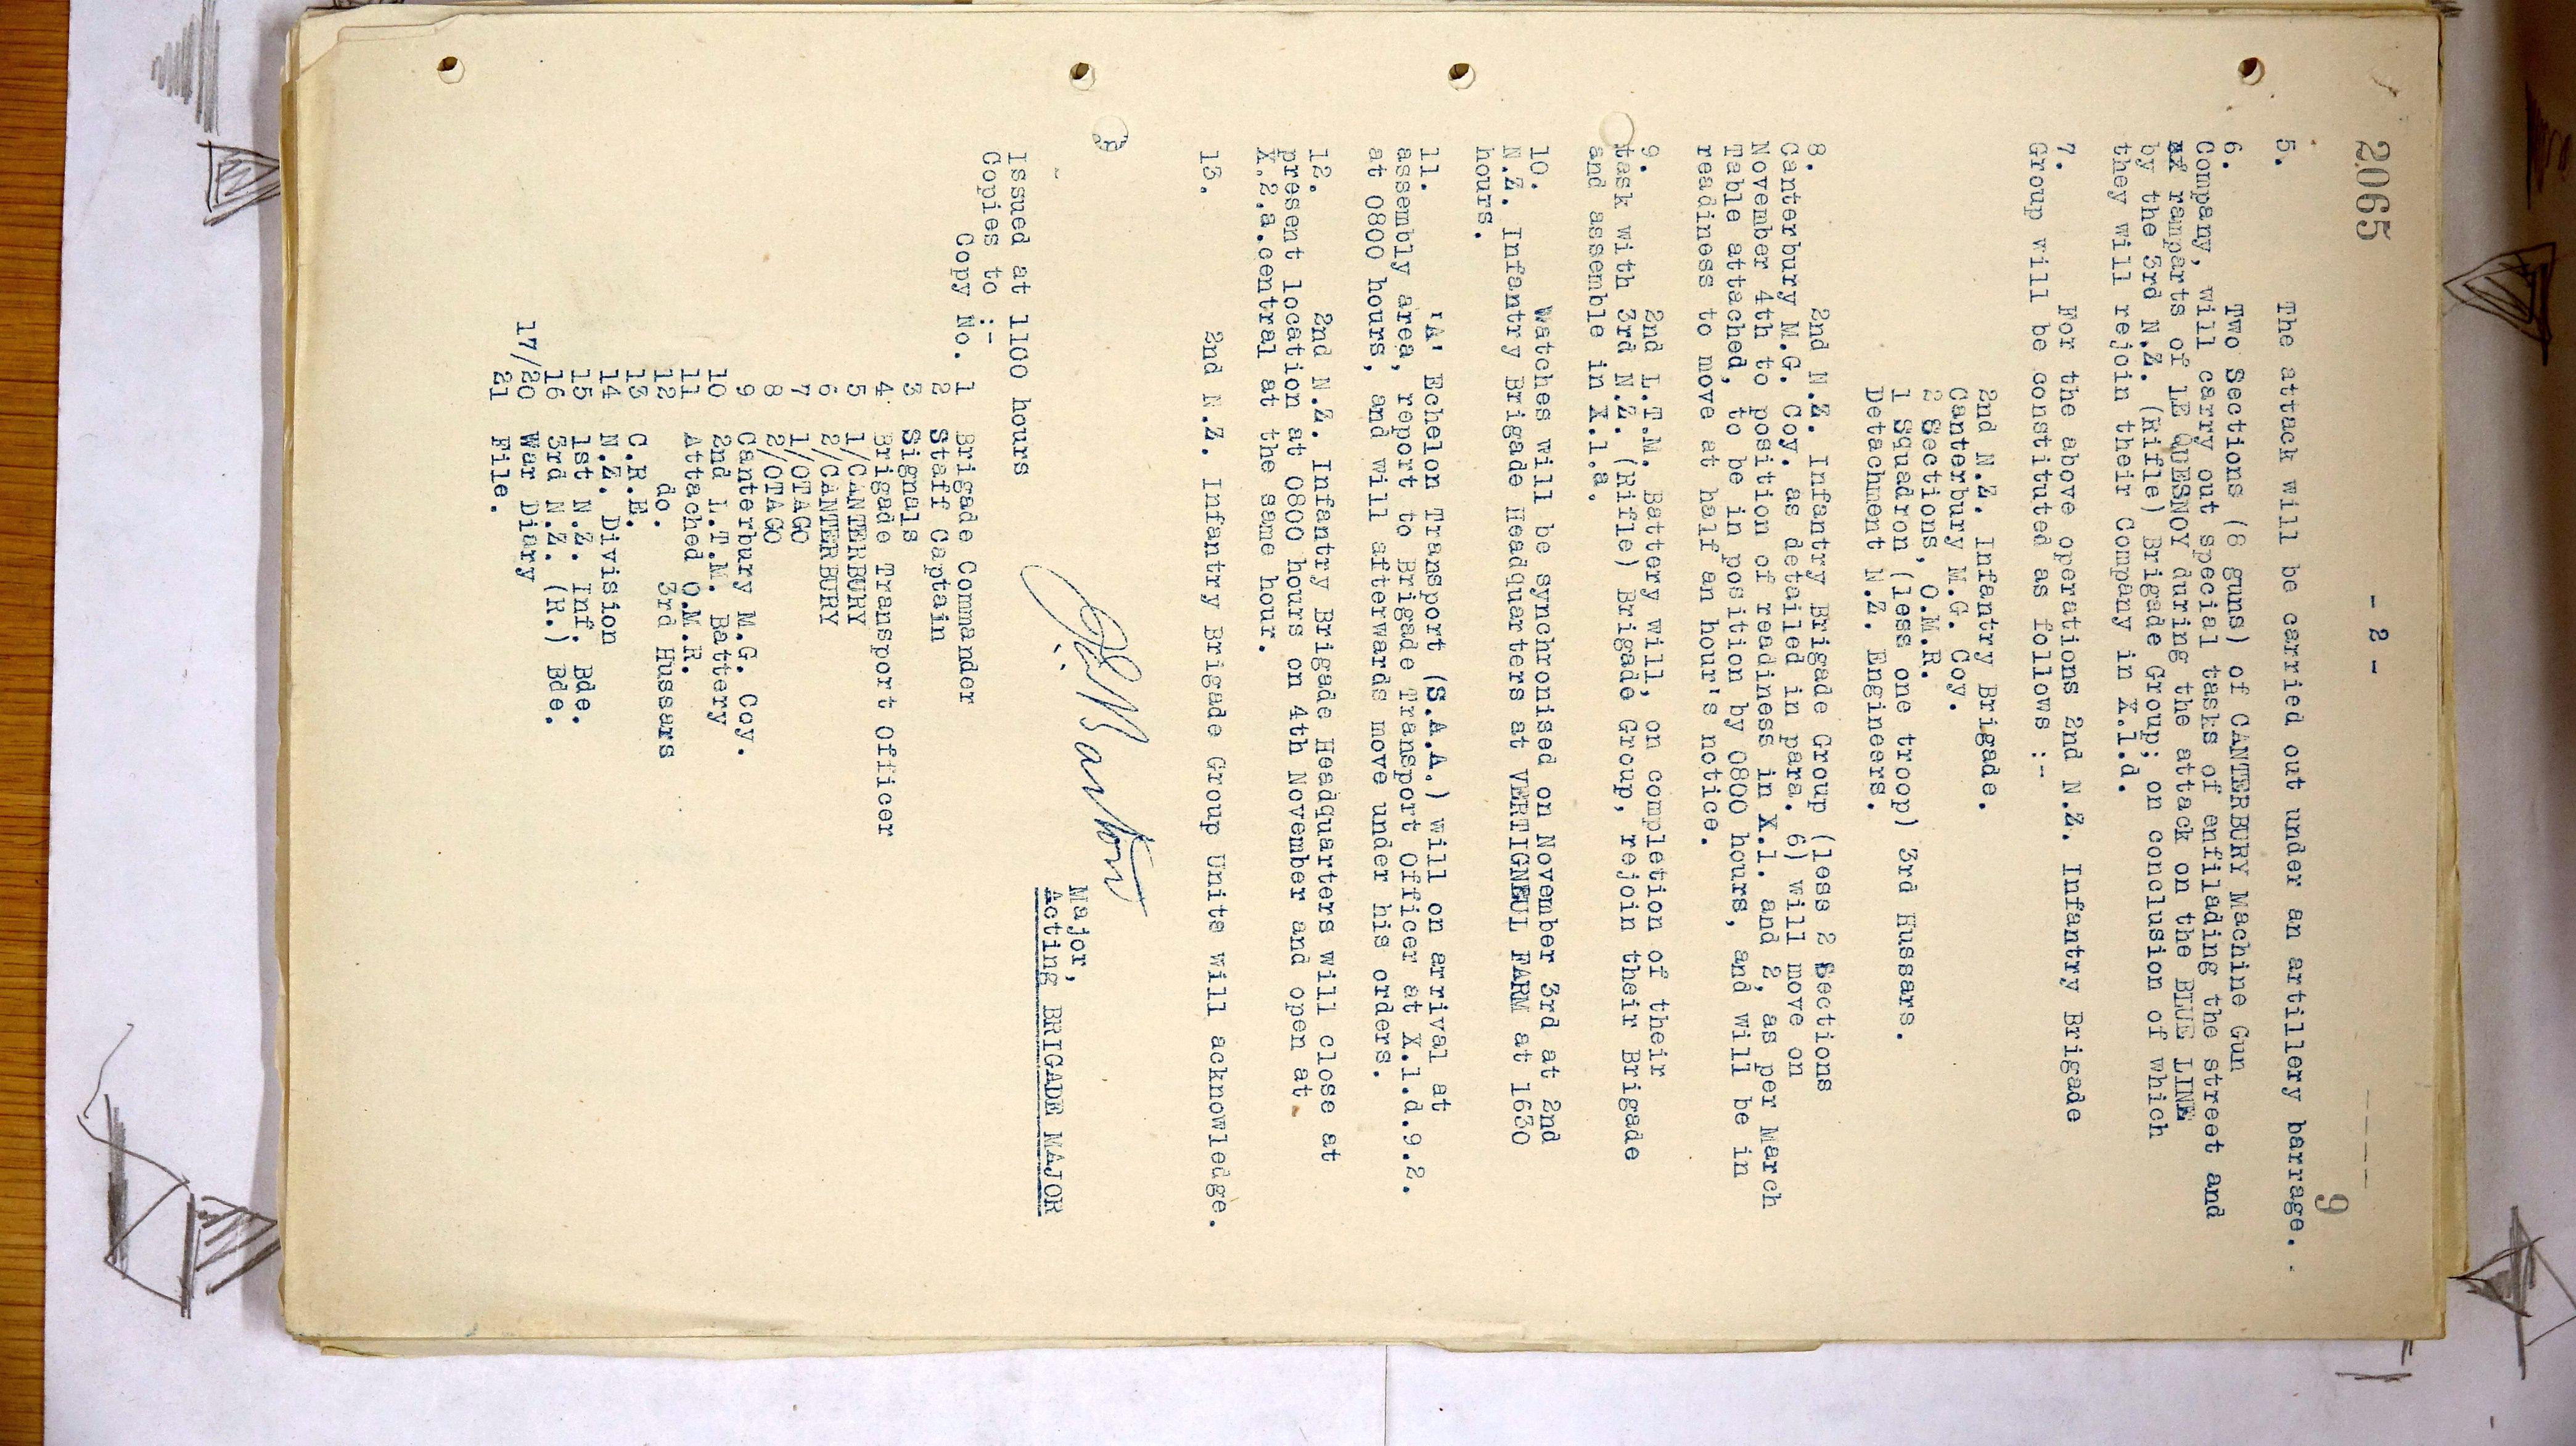 2065
- 2 -
9
5. The attack will be carried out under an artillery barrage.
6. Two Sections (8 guns) of CANTERBURY Machine Gun
Company, will carry out special tasks of enfilading the street and
of ramparts of LE QUESNOY during the attack on the BLUE LINE
by the 3rd N.Z. (Rifle) Brigade Group; on conclusion of which
they will rejoin their Company in X.1.d.
7. For the above operations 2nd N.Z. Infantry Brigade
Group will be constituted as follows :-
2nd N.Z. Infantry Brigade.
Canterbury M.G. Coy.
2 Sections, O.M.R.
1 Squadron (less one troop) 3rd Hussars.
Detachment N.Z. Engineers.
8. 2nd N.Z. Infantry Brigade Group (less 2 Sections
Canterbury M.G. Coy. as detailed in para. 6) will move on
November 4th to position of readiness in X.1. and 2, as per March
Table attached, to be in position by 0800 hours, and will be in
readiness to move at half an hour's notice.
9. 2nd L.T.M. Battery will, on completion of their
task with 3rd N.Z. (Rifle) Brigade Group, rejoin their Brigade
and assemble in X.1.a.
10. Watches will be synchronised on November 3rd at 2nd
N.Z. Infantry Brigade Headquarters at VERTIGNEUL FARM at 1630
hours.
11. 'A' Echelon Transport (S.A.A.) will on arrival at
assembly area, report to Brigade Transport Officer at X.1.d.9.2.
at 0800 hours, and will afterwards move under his orders.
12. 2nd N.Z. Infantry Brigade Headquarters will close at
present location at 0800 hours on 4th November and open at
X.2.a.central at the same hour.
13. 2nd N.Z. Infantry Brigade Group Units will acknowledge.
Major,
Acting BRIGADE MAJOR
Issued at 1100 hours
Copies to :-
Copy No. 1 Brigade Commander
2 Staff Captain
3 Signals
4 Brigade Transport Officer
5 1/CANTERBURY
6 2/CANTERBURY
7 1/OTAGO
8 2/OTAGO
9 Canterbury M.G. Coy.
10 2nd L.T.M. Battery
11 Attached O.M.R.
12 do. 3rd Hussars
13 C.R.E.
14 N.Z. Division
15 1st N.Z. Inf. Bde.
16 3rd N.Z. (R.) Bde.
17/20 War Diary
21 File.